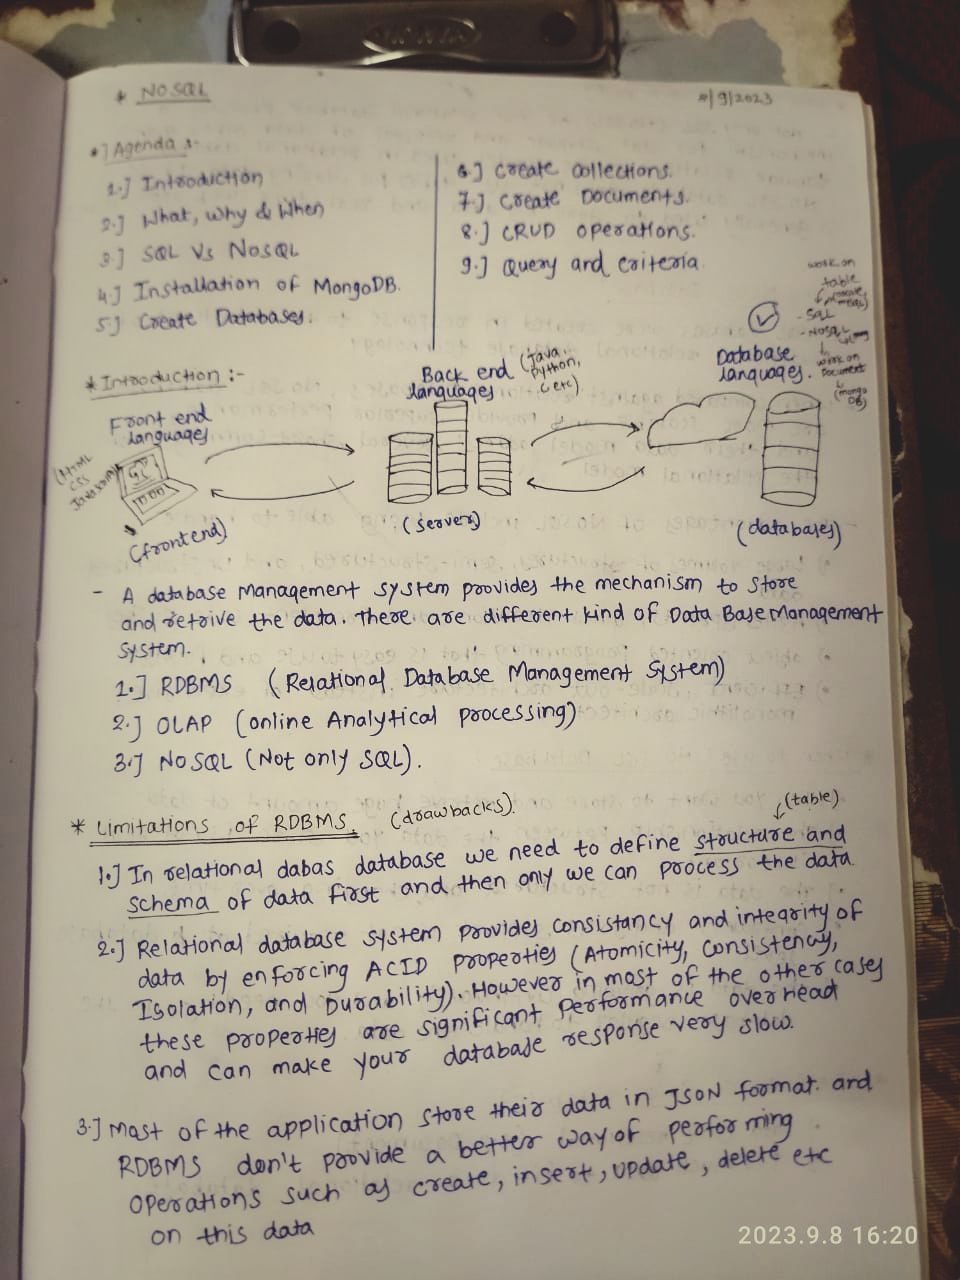 * NOSQL
*] Agenda :-
1.] Introduction
2.] What, why & When
3.] SQL Vs NoSQL
4.] Installation of MongoDB.
5.] Create Databases.
6.] Create collections.
7.] Create Documents.
8.] CRUD operations.
9.] Query and criteria
* Introduction :-
Front end
languages
(HTML
CSS
Javascript)
(frontend)
Back end
languages
(Java,
python,
C etc)
(server)
Database
languages.
work on
table
- SQL
- NOSQL
work on
Document
(mongo
DB)
(databases)
- A database Management system provides the mechanism to store
and retrive the data. There are different kind of Data Base Management
System.
1.] RDBMS (Relational Database Management System)
2.] OLAP (online Analytical processing)
3.] NOSQL (Not only SQL).
* Limitations of RDBMS (drawbacks).
(table)
1.] In relational dabas database we need to define structure and
schema of data first and then only we can process the data.
2.] Relational database system provides consistancy and integrity of
data by enforcing ACID properties (Atomicity, Consistency,
Isolation, and Durability). However in most of the other cases
these properties are significant performance overhead
and can make your database response very slow.
3.] Most of the application store their data in JSON format. and
RDBMS don't provide a better way of performing
operations such as create, insert, update, delete etc
on this data
2023.9.8 16:20